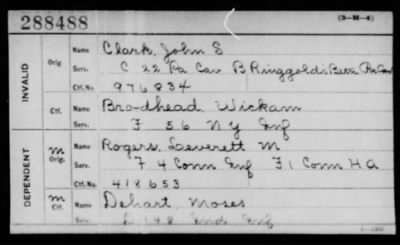 288488
(3-M-4)
INVALID
Orig
Name Clark, John S
Serv. C 22 Pa Cav B Ringgolds Batn Pa Cav
Ctf. No. 976834
Ctf.
Name Brodhead, Wickam
Serv. F 56 N Y Inf
DEPENDENT
M Orig.
Name Rogers, Leverett M
Serv. F 4 Conn Inf F 1 Conn H A
Ctf. No. 418653
M Ctf.
Name Dehart, Moses
Serv. 148 Ind Inf